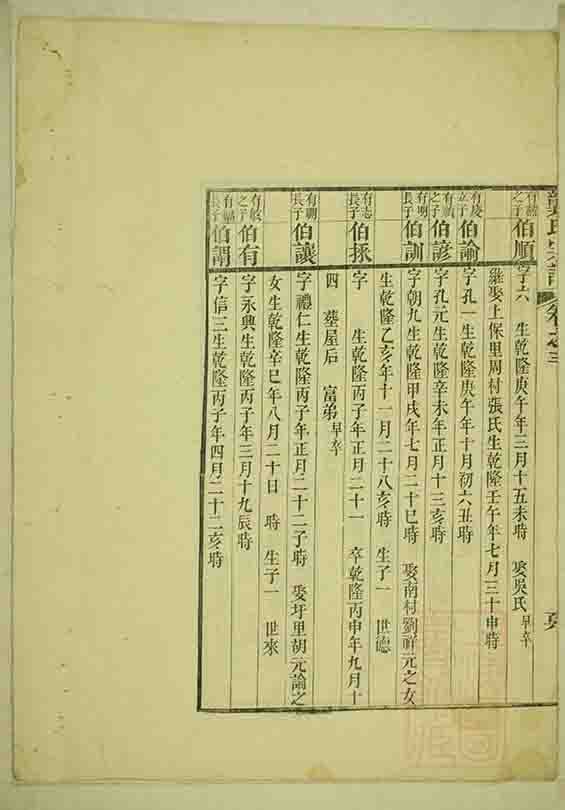 氏宗譜 卷之三
有 之子 伯順 字六 生乾隆庚午年三月十五未時 娶吳氏 早卒
繼娶上保里周村張氏生乾隆壬午年七月三十申時
有 子 伯諭 字孔一生乾隆庚午年十月初六丑時
有 之子 伯諺 字孔元生乾隆辛未年正月十三亥時
有明 長子 伯訓 字朝九生乾隆甲戌年七月二十巳時 娶南村劉祥元之女
生乾隆乙亥年十一月二十八亥時 生子一 世德
有志 長子 伯拯 字 生乾隆丙子年正月二十一 卒乾隆丙申年九月十
四 塟屋后 富弟早卒
有 長子 伯讓 字禮仁生乾隆丙子年正月二十二子時 娶圩里胡元論之
女生乾隆辛巳年八月二十日 時 生子一 世來
有 之子 伯有 字永興生乾隆丙子年三月十九辰時
有 長子 伯謂 字信三生乾隆丙子年四月二十二亥時